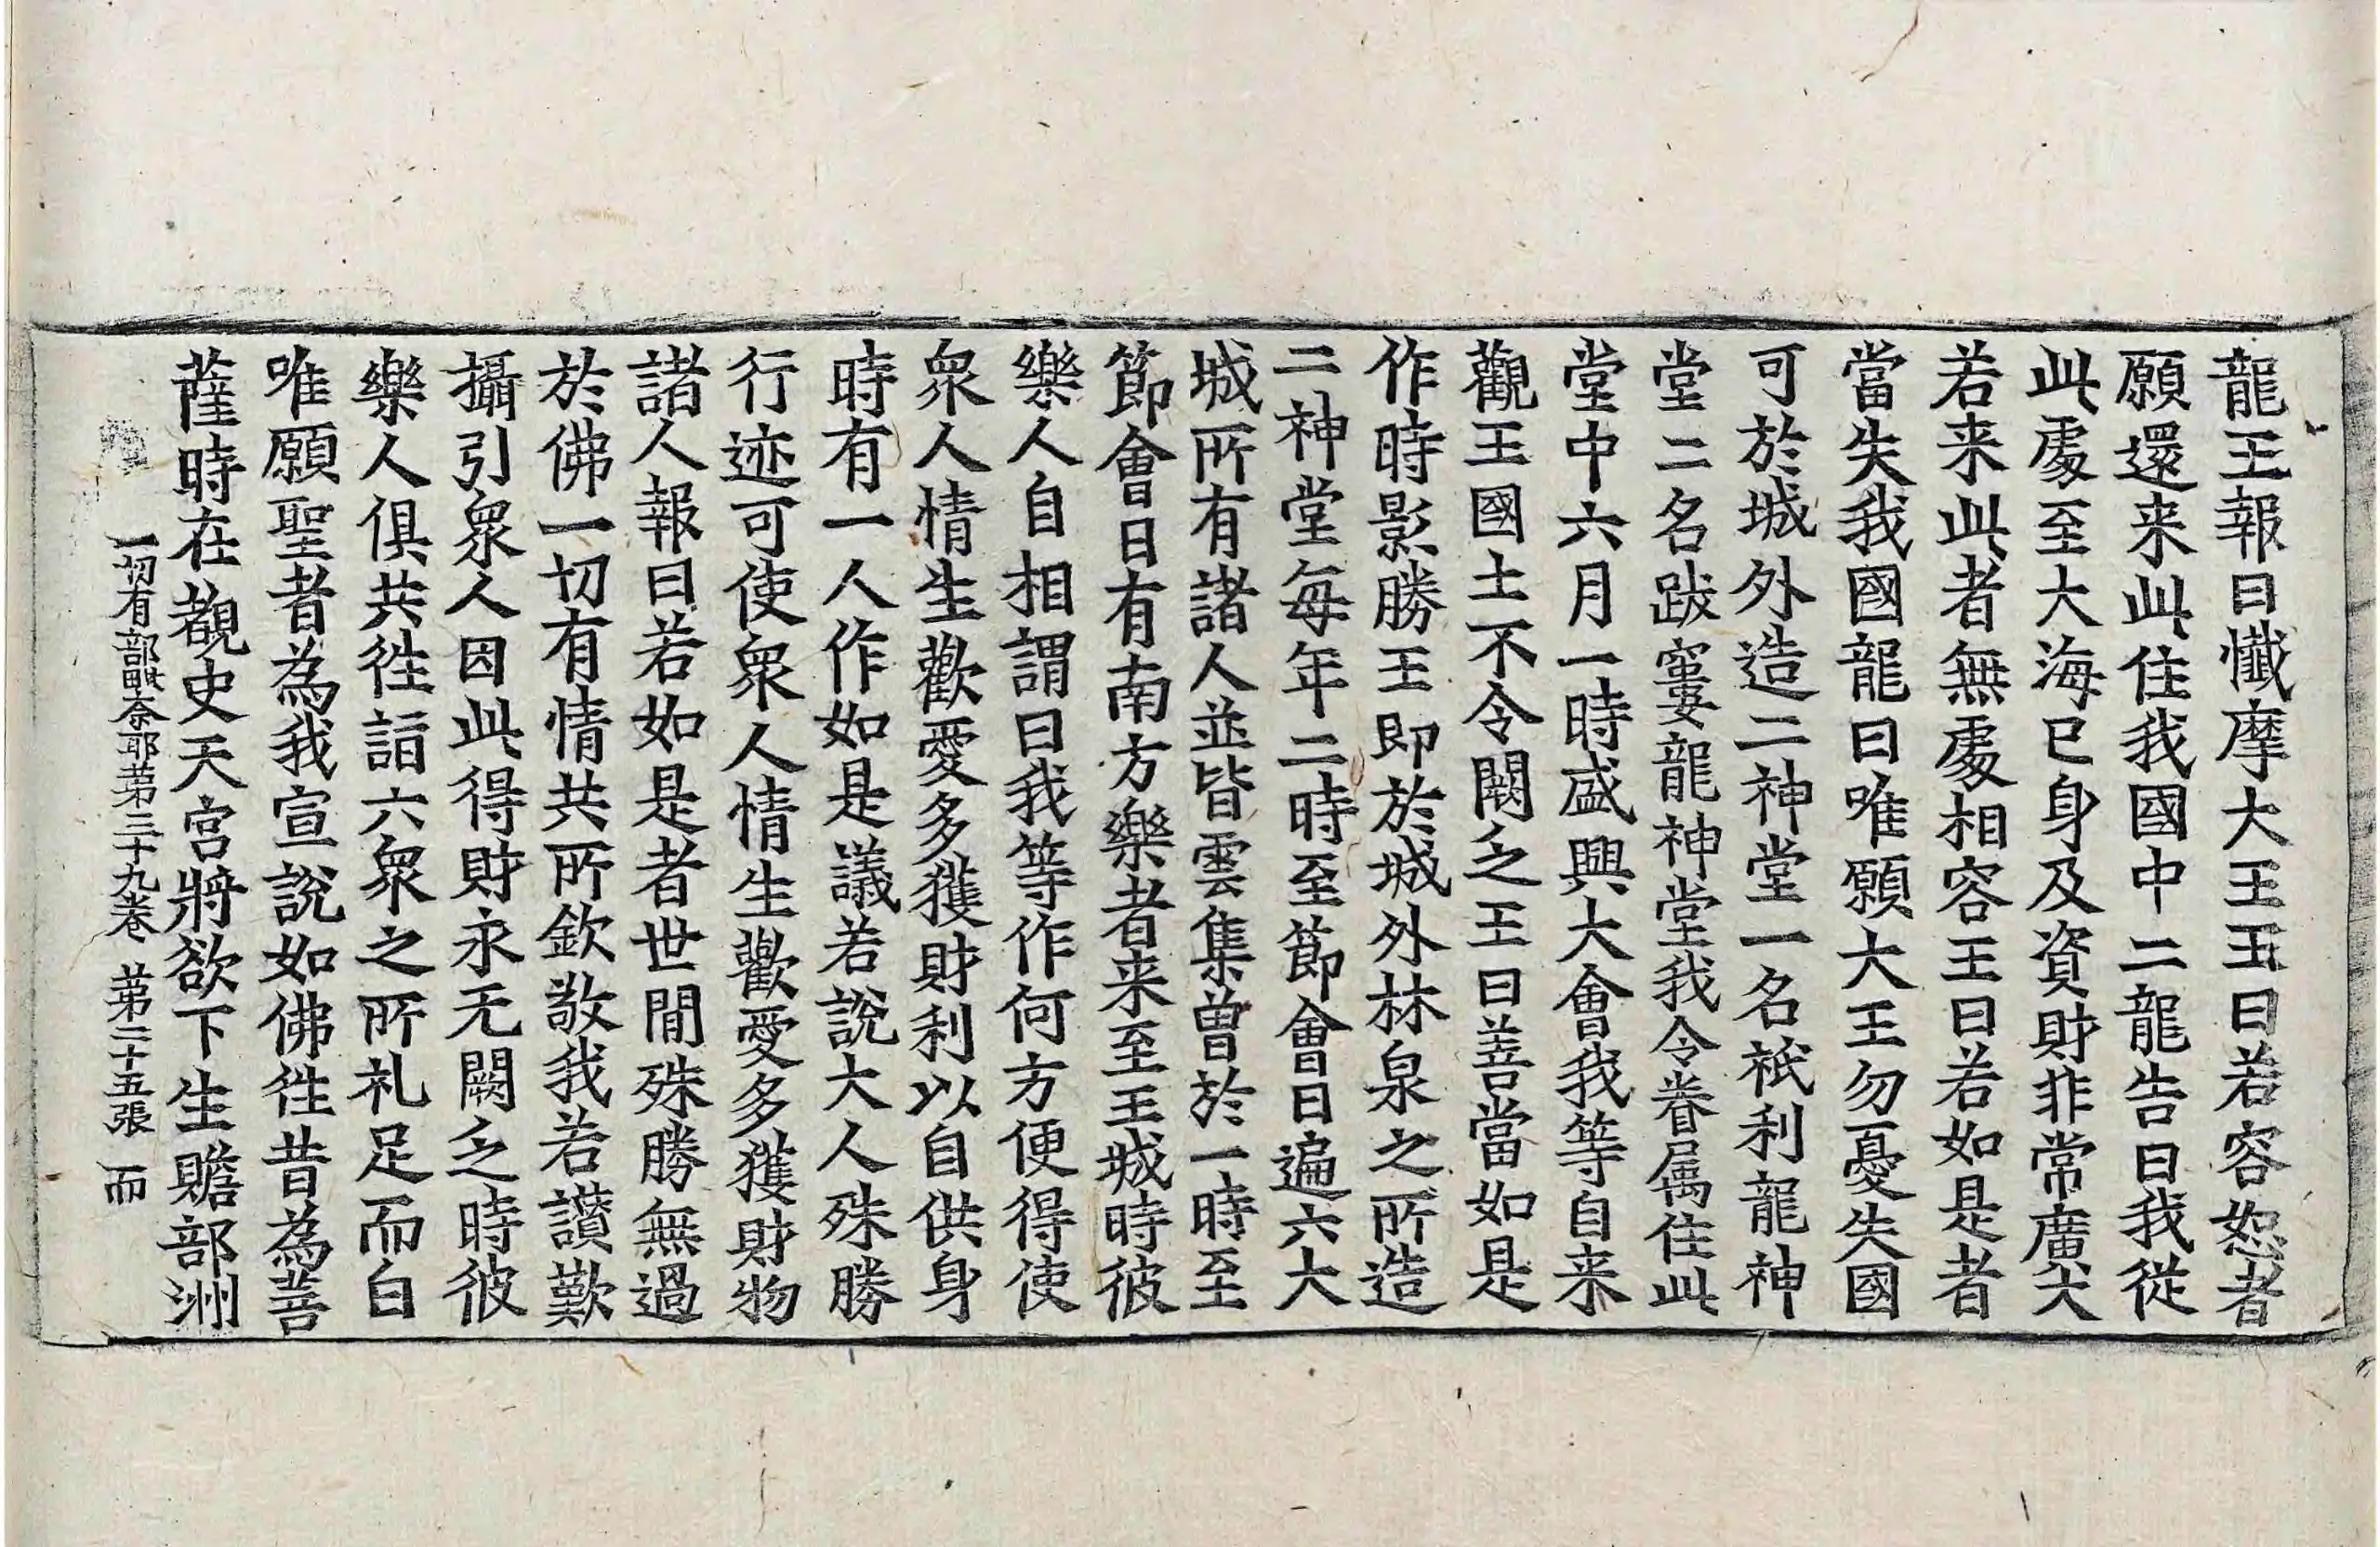 龍王報曰懺摩大王王曰若容恕者
願還来此住我國中二龍告曰我從
此處至大海已身及資財非常廣大
若来此者無處相容王曰若如是者
當失我國龍曰唯願大王勿憂失國
可於城外造二神堂一名祇利龍神
堂二名跋窶龍神堂我令眷属住此
堂中六月一時盛興大會我等自来
觀王國土不令闕乏王曰善當如是
作時影勝王即於城外林泉之所造
二神堂每年二時至節會日遍六大
城所有諸人並皆雲集曾於一時至
節會日有南方樂者来至王城時彼
樂人自相謂曰我等作何方便得使
衆人情生歡愛多獲財利以自供身
時有一人作如是議若說大人殊勝
行迹可使衆人情生歡愛多獲財物
諸人報曰若如是者世間殊勝無過
於佛一切有情共所欽敬我若讃歎
攝引衆人因此得財永无闕乏時彼
樂人俱共徃詣六衆之所礼足而白
唯願聖者為我宣說如佛徃昔為菩
薩時在覩史天宮將欲下生贍部洲
一切有部毗奈耶第三十九卷 第二十五張 而